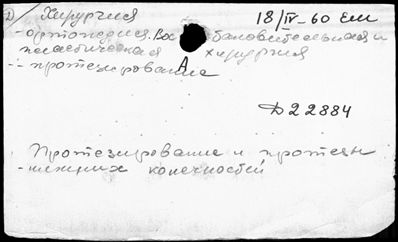 Д/ Хирургия 18/IV-60 Ем
- ортопедия. Восстановительная и
пластическая хирургия
- протезирование
Д22884
Протезирование и протезы
нижних конечностей